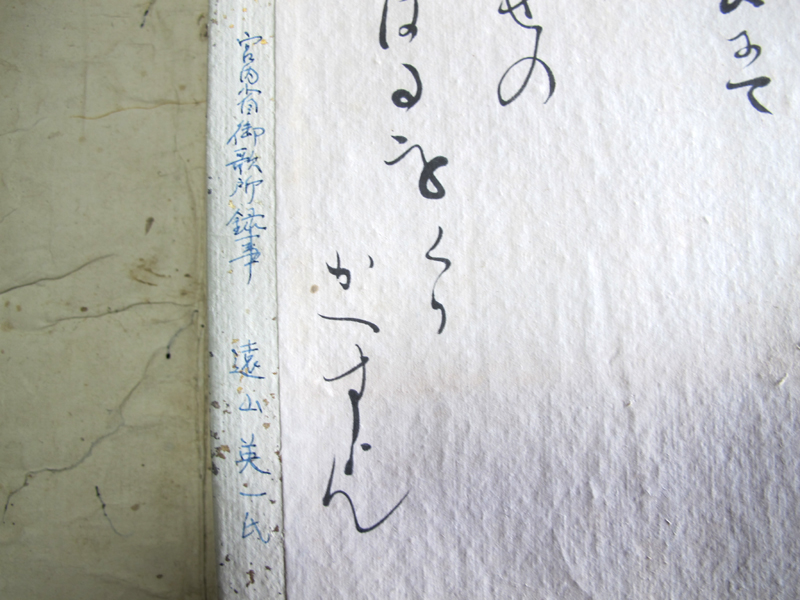 て
せの
はるをくり
かへすらん
宮内省御歌所録事 遠山英一氏